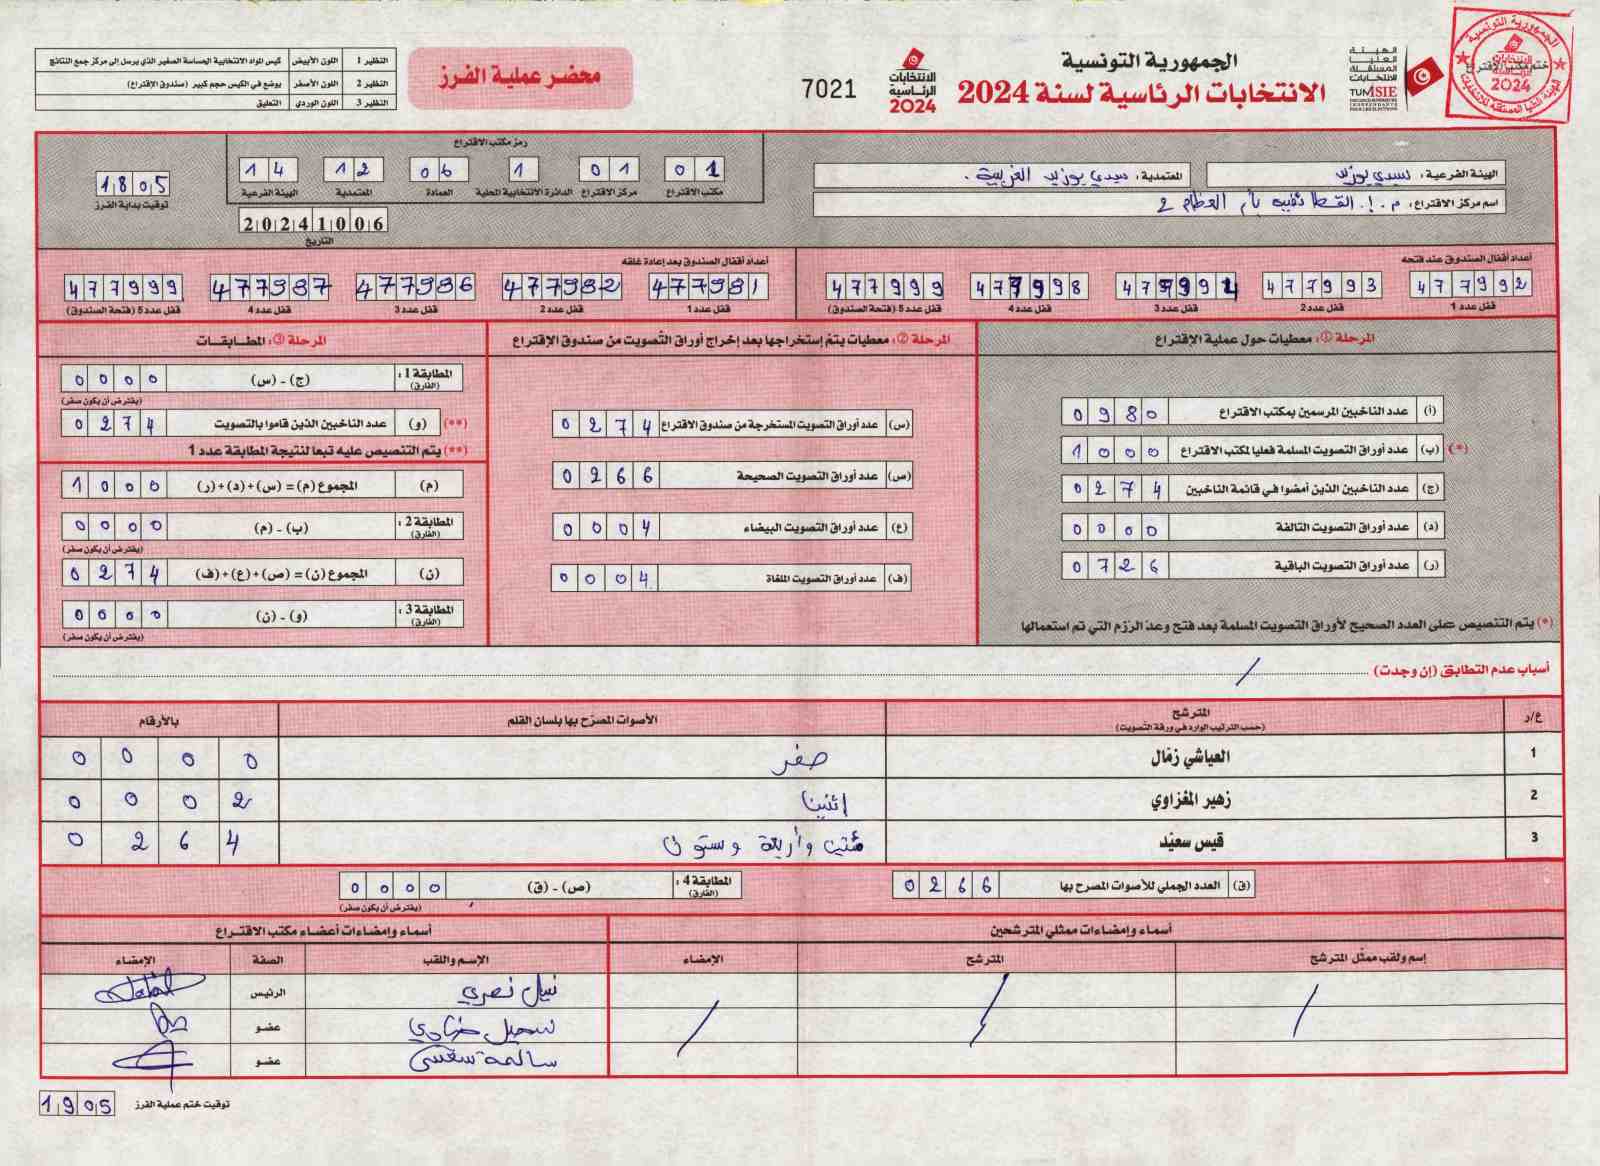 الجمهورية التونسية
الانتخابات الرئاسية لسنة 2024
الهيئة العليا المستقلة للانتخابات
TUNISIE
الانتخابات الرئاسية 2024
7021
محضر عملية الفرز
النظير 1 اللون الأبيض كيس المواد الانتخابية الحساسة الصغير الذي يرسل إلى مركز جمع النتائج
النظير 2 اللون الأصفر يوضع في الكيس حجم كبير (صندوق الاقتراع)
النظير 3 اللون الوردي التعليق
الجمهورية التونسية
ختم مكتب الاقتراع
الانتخابات الرئاسية 2024
الهيئة الفرعية: سيدي بوزيد
المعتمدية: سيدي بوزيد الغربية.
اسم مركز الاقتراع: م.إ. القطا بأم العظام 2
رمز مكتب الاقتراع
01 01 1 06 12 14
مكتب الاقتراع مركز الاقتراع الدائرة الانتخابية المحلية العمادة المعتمدية الهيئة الفرعية
20241006
التاريخ
1805
توقيت بداية الفرز
أعداد أقفال الصندوق عند فتحه
477992 477993 477991 477998 477999
قفل عدد 1 قفل عدد 2 قفل عدد 3 قفل عدد 4 قفل عدد 5 (فتحة الصندوق)
أعداد أقفال الصندوق بعد إعادة غلقه
477981 477982 477986 477987 477999
قفل عدد 1 قفل عدد 2 قفل عدد 3 قفل عدد 4 قفل عدد 5 (فتحة الصندوق)
المرحلة ①: معطيات حول عملية الاقتراع
(أ) عدد الناخبين المرسمين بمكتب الاقتراع 0980
(*) (ب) عدد أوراق التصويت المسلمة فعليا لمكتب الاقتراع 1000
(ج) عدد الناخبين الذين أمضوا في قائمة الناخبين 0274
(د) عدد أوراق التصويت التالفة 0000
(ر) عدد أوراق التصويت الباقية 0726
(*) يتم التنصيص على العدد الصحيح لأوراق التصويت المسلمة بعد فتح وعد الرزم التي تم استعمالها
المرحلة ②: معطيات يتم إستخراجها بعد إخراج أوراق التصويت من صندوق الإقتراع
(س) عدد أوراق التصويت المستخرجة من صندوق الاقتراع 0274
(ص) عدد أوراق التصويت الصحيحة 0266
(ع) عدد أوراق التصويت البيضاء 0004
(ف) عدد أوراق التصويت الملغاة 0004
المرحلة ③: المطابقات
المطابقة 1: (الفارق) (ج) - (س) 0000
(يفترض أن يكون صفر)
(**) (و) عدد الناخبين الذين قاموا بالتصويت 0274
(**) يتم التنصيص عليه تبعا لنتيجة المطابقة عدد 1
(م) المجموع (م) = (س)+(د)+(ر) 1000
المطابقة 2: (الفارق) (ب) - (م) 0000
(يفترض أن يكون صفر)
(ن) المجموع (ن) = (ص)+(ع)+(ف) 0274
المطابقة 3: (الفارق) (و) - (ن) 0000
(يفترض أن يكون صفر)
أسباب عدم التطابق (إن وجدت) /
ع/د المترشح (حسب الترتيب الوارد في ورقة التصويت) الأصوات المصرح بها بلسان القلم بالأرقام
1 العياشي زمّال صفر 0000
2 زهير المغزاوي اثنين 0002
3 قيس سعيّد مئتين وأربعة وستون 0264
(ق) العدد الجملي للأصوات المصرح بها 0266
المطابقة 4: (الفارق) (ص) - (ق) 0000
(يفترض أن يكون صفر)
أسماء وإمضاءات ممثلي المترشحين
إسم ولقب ممثل المترشح المترشح الإمضاء
/ / /
أسماء وإمضاءات أعضاء مكتب الاقتراع
الإسم واللقب الصفة الإمضاء
نبيل نصري الرئيس
سهيل عضو
سالمة عضو
توقيت ختم عملية الفرز 1905